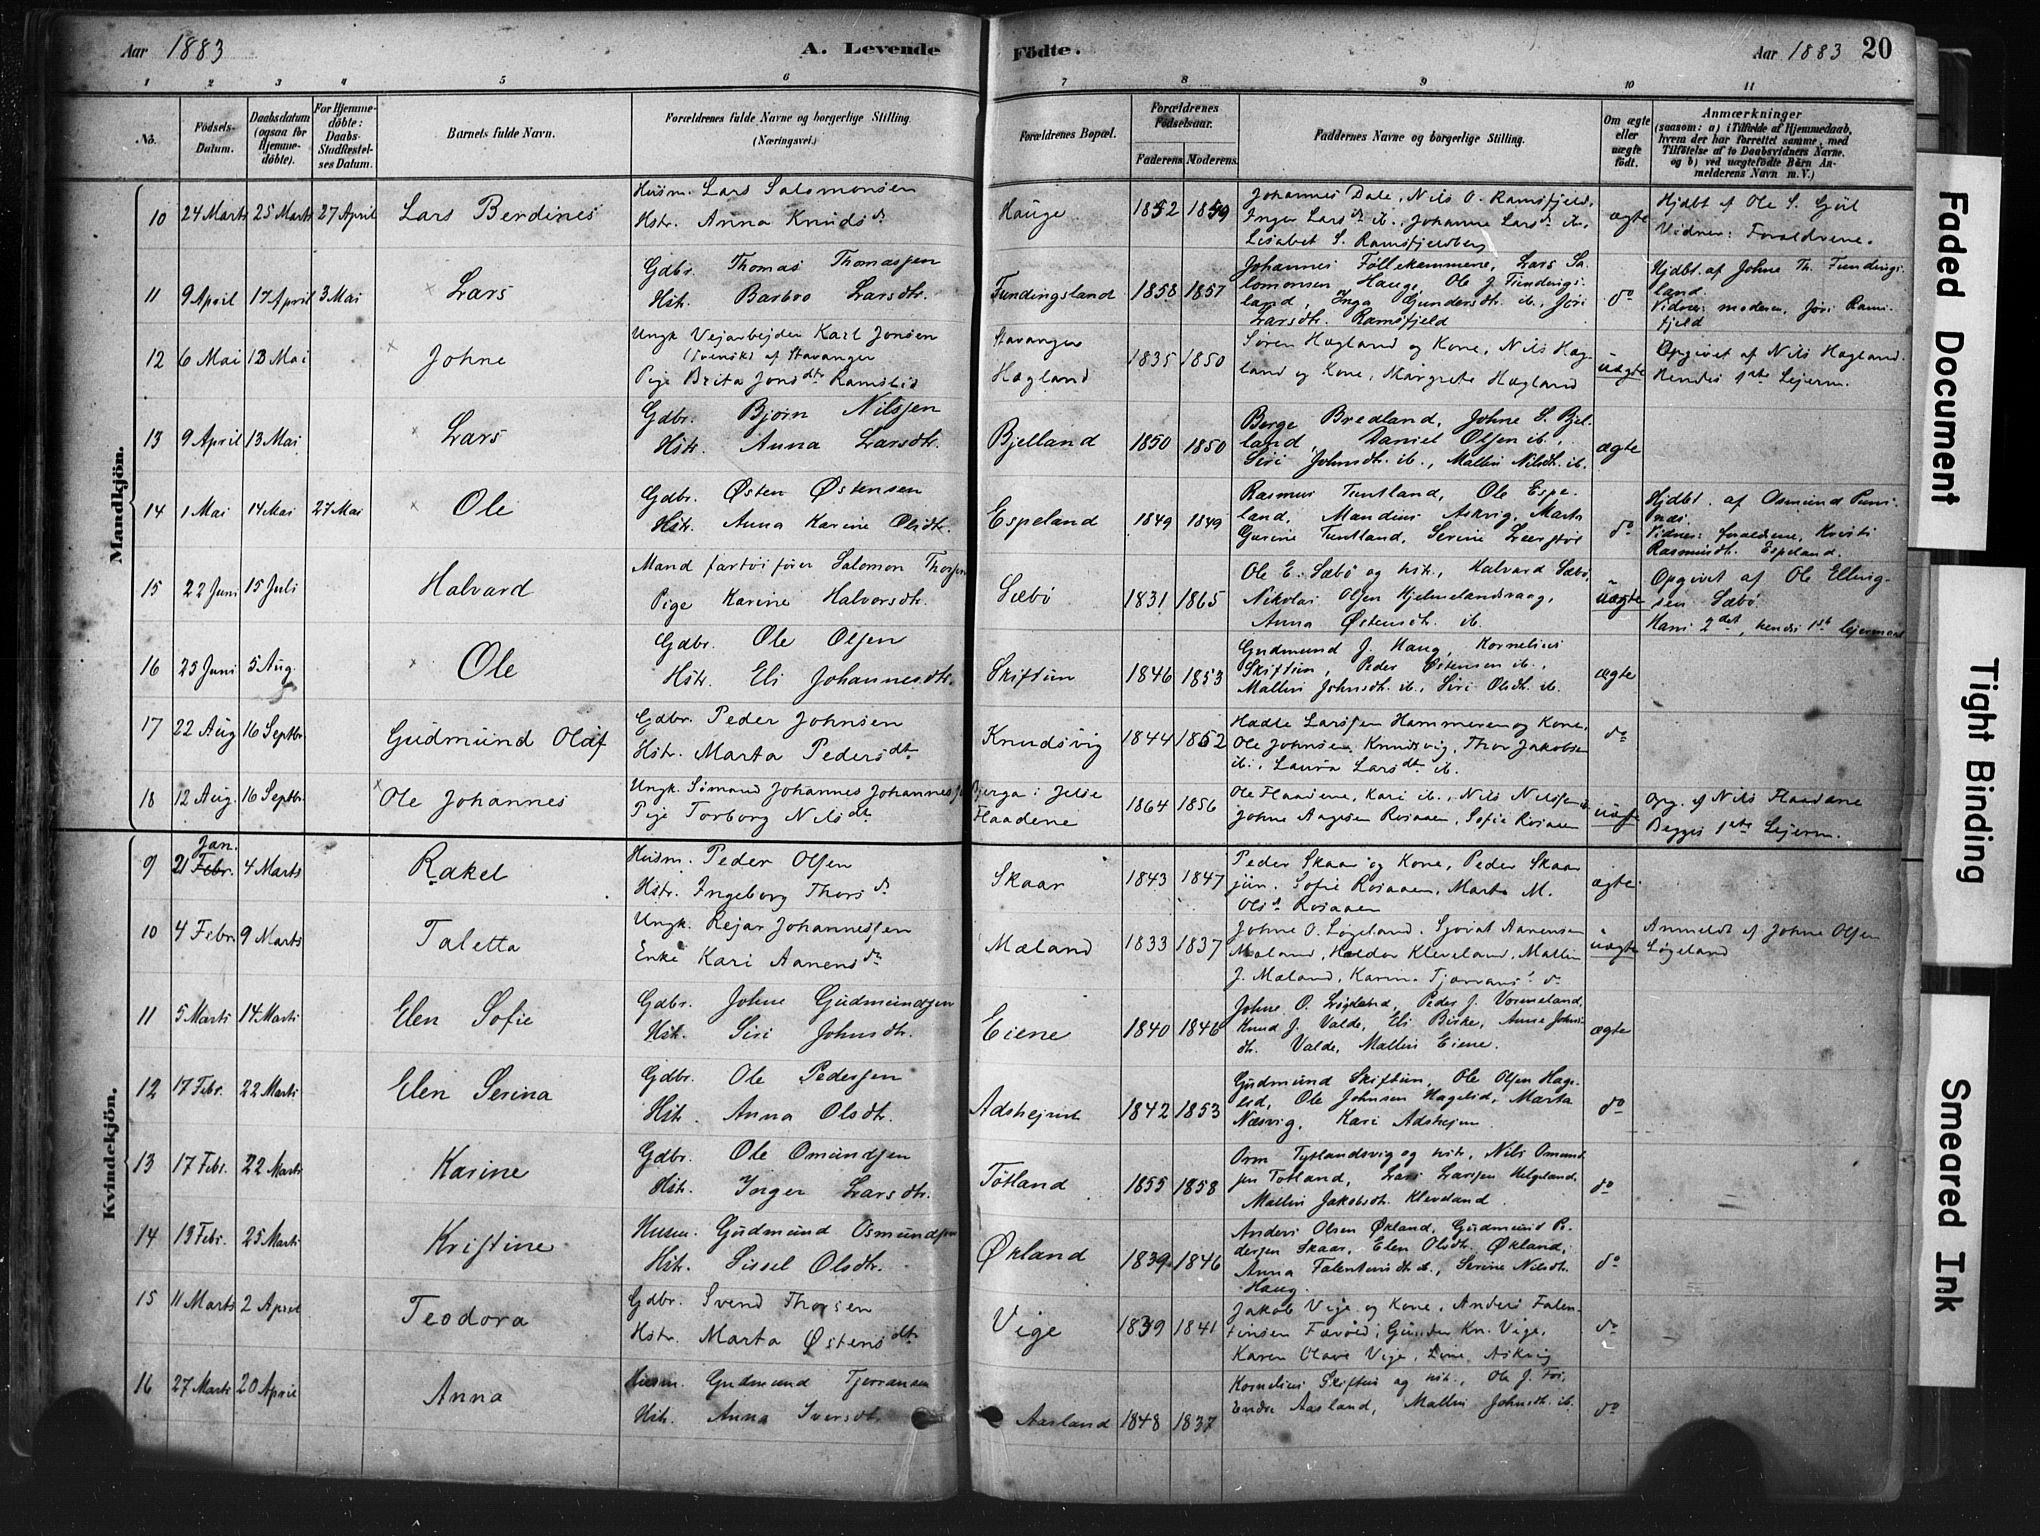 Aar 1883
A. Levende
Födte.
Aar 1883
20
1 2 3 4 5 6 7 8 9 10 11
No.
Födsels-
Datum.
Daabsdatum
(ogsaa for
Hjemme-
döbte).
For Hjemme-
döbte:
Daabs-
Stadfæstel-
ses Datum.
Barnets fulde Navn.
Forældrenes fulde Navne og borgerlige Stilling.
(Næringsvei.)
Forældrenes Bopæl.
Forældrenes
Födselsaar.
Faderens. Moderens.
Faddernes Navne og borgerlige Stilling.
Om ægte
eller
uægte
födt.
Anmærkninger
(saasom: a) i Tilfælde af Hjemmedaab,
hvem der har forrettet samme, med
Tilföielse af to Daabsvidners Navne,
og b) ved uægtefödte Börn An-
melderens Navn m. V.)
Mandkjön.
10 24 Marts 25 Marts 27 April Lars Berdines
Husm. Lars Salomonsen
Hstr. Anna Knudsd.
Hauge 1852 1859
Johannes Dale, Nils O. Ramsfjeld,
Inger Larsd. ib., Johanne Larsd. ib.,
Lisabet S. Ramsfjeldberg
ægte
Hjdbt af Ole S.
Vidner: Forældrene.
11 9 April 17 April 3 Mai Lars
Gdbr. Thomas Thomassen
Hstr. Barbro Larsdtr.
Fundingsland 1858 1857
Johannes Føllekammene, Lars Sa-
lomonsen Hauge, Ole J. Fundings-
land, Inga Gundersdtr. ib., Jøri
Larsdtr. Ramsfjeld
do
Hjdbt. af Johne Th. Fundings-
land.
Vidner: moderen, Jøri Rams-
fjeld
12 6 Mai 13 Mai Johne
Ungk. Vejarbejder Karl Jonsen
(svensk) af Stavanger
Pige Brita Jonsdtr. Ramslid
Stavanger
Hagland
1835 1850
Søren Hagland og Kone, Nils Hag-
land og Kone, Margrete Hagland
uægte
Opgivet af Nils Hagland.
Hendes 1ste Lejerm.
13 9 April 13 Mai Lars
Gdbr. Bjørn Nilssen
Hstr. Anna Larsdtr.
Bjelland 1850 1850
Børge Bredland, Johne S. Bjel-
land, Daniel Olsen ib.,
Siri Johnsdtr. ib., Mallin Nilsdtr. ib.
ægte
14 1 Mai 14 Mai 27 Mai Ole
Gdbr. Østen Østensen
Hstr. Anna Karine Olsdtr.
Espeland 1849 1849
Rasmus Tuntland, Ole Espe-
land, Mandius Askvig, Marta
Gurine Tuntland, Serine
do
Hjdbt. af Osmund
Vidner: forældrene, Kristi
Rasmusdtr. Espeland.
15 22 Juni 15 Juli Halvard
Mand fartøifører Salomon
Pige Karine Halvorsdtr.
Sæbø 1831 1865
Ole E. Sæbø og hstr., Halvard Sæbø,
Nikolai Olsen Hjelmelandsvaag,
Anna Østensdtr. ib.
uægte
Opgivet af Ole Elling-
sen Sæbø
Hans 2det, hendes 1ste lejermaal
16 25 Juni 5 Aug. Ole
Gdbr. Ole Olsen
Hstr. Eli Johannesdtr.
Skiftun 1846 1853
Gudmund J. Haug, Kornelius
Skiftun, Peder Østensen ib.,
Mallin Johnsdtr. ib., Siri Olsdtr. ib.
ægte
17 22 Aug 16 Septbr. Gudmund Olaf
Gdbr. Peder Johnsen
Hstr. Marta Pedersdtr.
Knudsvig 1844 1852
Hadle Larssen Hammeren og Kone,
Ole Johnsen Knudsvig, Thor Jakobsen
ib., Laura Larsdtr. ib.
do
18 12 Aug. 16 Septbr. Ole Johannes
Ungk. Simund Johannes
Pige Torborg Nilsdtr.
Bjerga i Jelse
Flaadene
1864 1856
Ole Flaadene, Kari ib., Nils Nilssen
Johne Aagesen Rosaaen, Sofie Rosaaen
uægte
Opg. af Nils Flaadene
Begges 1ste Lejerm.
Kvindekjön.
9 Jan.
21 Febr. 4 Marts Rakel
Husm. Peder Olsen
Hstr. Ingeborg Thorsd.
Skaar 1843 1847
Peder Skaar og Kone, Peder Skaar
jun. Sofie Rosaaen, Marta M.
Olsd. Rosaaen
ægte
10 4 Febr. 9 Marts Taletta
Ungk. Rejar Johannessen
Enke Kari Aanensdr.
Mæland 1833 1837
Johne O. Løgeland. Sjovat Aanensen
Mæland, Haldor Kleveland, Mallin
J. Mæland, Karin
uægte
Anmeldt af Johne Olsen
Løgeland
11 5 Marts 14 Marts Elen Sofie
Gdbr. Johne Gudmundsen
Hstr. Siri Johnsdtr.
Eiene 1840 1846
Johne O. Løgland, Peder J. Vormeland,
Knud J. Valde, Eli Biske, Anna Johns-
dtr. Valde, Mallin Eiene.
ægte
12 17 Febr. 22 Marts Elen Serina
Gdbr. Ole Pedersen
Hstr. Anna Olsdtr.
Adshejm 1842 1853
Gudmund Skiftun, Ole Olsen Hage-
lid, Ole Johnsen Hagelid, Marta
Næsvig, Kari Adshejm
do
13 17 Febr. 22 Marts Karine
Gdbr. Ole Omundsen
Hstr. Inger Larsdtr.
Tøtland 1855 1858
Orm Tytlandsvig og hstr, Nils Omund-
sen Tøtland, Lars Larssen Helgeland,
Mallin Jakobsdtr. Kleveland
do
14 13 Febr. 25 Marts Kristine
Husm. Gudmund Osmundsen
Hstr. Sissel Olsdtr.
Økland 1839 1846
Anders Olsen Økland, Gudmund Pe-
dersen Skaar, Elen Olsdtr. Økland,
Anna Falentinsdtr. ib., Serine Nilsdtr.
Haug.
do
15 11 Marts 2 April Teodora
Gdbr. Svend Thorsen
Hstr. Marta Østensdtr.
Vige 1839 1841
Jakob Vige og Kone, Anders Falen-
tinsen Gunder Kn. Vige,
Karen Olave Vige, Askvig
do
16 27 Marts 20 April Anna
Husm. Gudmund
Hstr. Anna Iversdtr.
Aasland 1848 1837
Kornelius Skiftun og hstr., Ole J.
Endre Aasland, Mallin Johnsdtr. ib.
do
Faded Document
Tight Binding
Smeared Ink